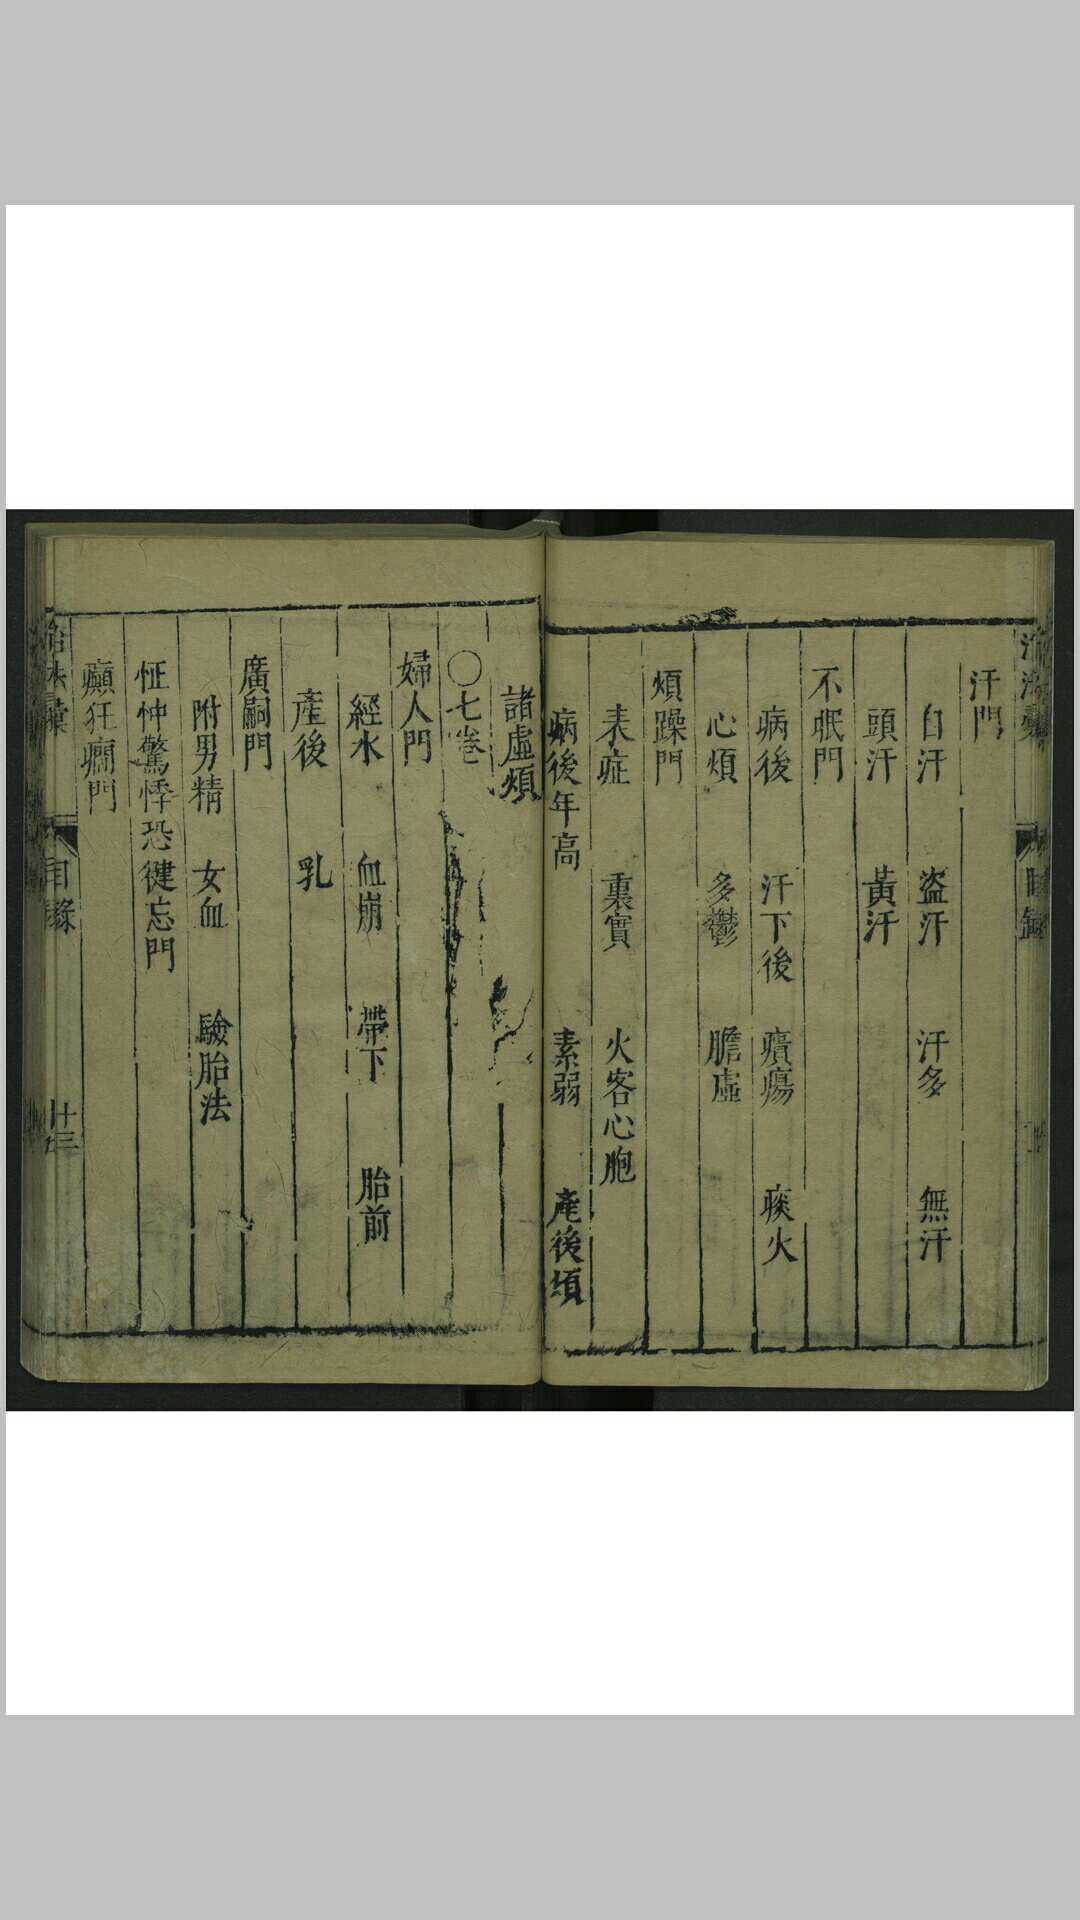 汗門
自汗 盜汗 汗多 無汗
頭汗 黃汗
不眠門
病後 汗下後 癀瘍 痰火
心煩 多鬱 膽虛
煩躁門
表症 裏實 火客心胞
病後年高 素弱 產後煩
諸虛煩
〇七卷
婦人門
經水 血崩 帶下 胎前
產後 乳
廣嗣門
附男精 女血 驗胎法
怔忡驚悸恐健忘門
癲狂癇門
目錄 十三